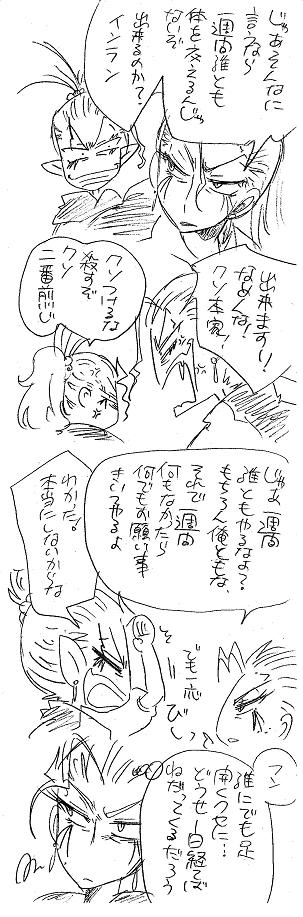 じゃあそんなに
言うなら
一週間誰とも
体を交えるんじゃ
ないぞ
出来るのか?
インラン
出来ますぅー!
なめんな!
クソ本家!
クソつけるな
殺すぞ
クソ
二番煎じ
じゃあ一週間
誰ともやるなよ?
もちろん俺ともな、
それで一週間
何もなかったら
何でもお願い事
きいてやるよ
わかった。
本当にしないからな
でも一応
フン
誰にでも足
開くクセに…
どうせ一日経てば
ねだってくるだろう